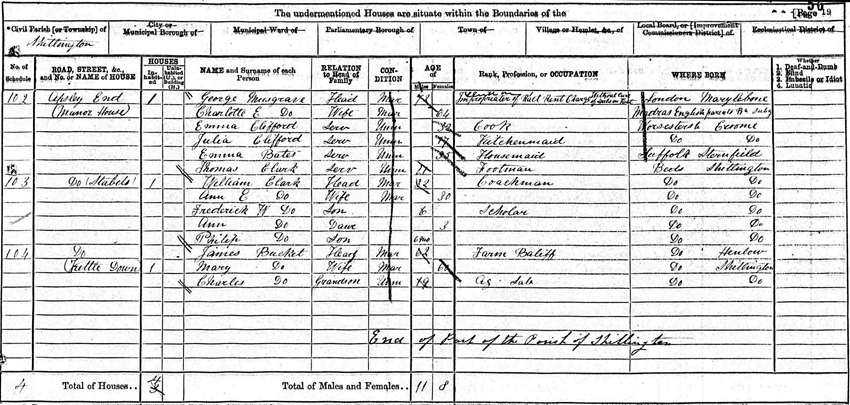 The undermentioned Houses are situate within the Boundaries of the
[Page 19
*Civil Parish [or Township] of
City or
Municipal Borough of
Municipal Ward of
Parliamentary Borough of
Town of
Village or Hamlet, &c., of
Local Board, or [Improvement
Commissioners District] of
Ecclesiastical District of
Shillington
No. of Schedule
ROAD, STREET, &c., and No. or NAME of HOUSE
HOUSES
In-habited
Unin-habited (U.), or Building (B.)
NAME and Surname of each Person
RELATION to Head of Family
CON-DITION
AGE of
Males
Females
Rank, Profession, or OCCUPATION
WHERE BORN
Whether
1. Deaf-and-Dumb
2. Blind
3. Imbecile or Idiot
4. Lunatic
102 Apsley End 1 George Musgrave Head Mar 73 London Marylebone
(Manor House) Charlotte E Do Wife Mar 64 Madras English parents
Emma Clifford Serv Unm Cook Worcestersh Croome
Julia Clifford Serv Unm Kitchenmaid Do Do
Emma Bates Serv Unm Housemaid Suffolk Sternfield
Thomas Clark Serv Unm 21 Footman Beds Shillington
103 Do (Stabels) 1 William Clark Head Mar 32 Coachman Do Do
Ann E Do Wife Mar 30 Do Do
Frederick W Do Son 6 Scholar Do Do
Ann Do Daur 3 Do Do
Philip Do Son 6mo Do Do
104 Do James Bucket Head Mar 62 Farm Baliff Do Henlow
(Kettle Down) 1 Mary Do Wife Mar Do Shillington
Charles Do Grandson Unm 19 Ag. Lab Do Do
End of Part of the Parish of Shillington
4 Total of Houses.. Total of Males and Females.. 11 8